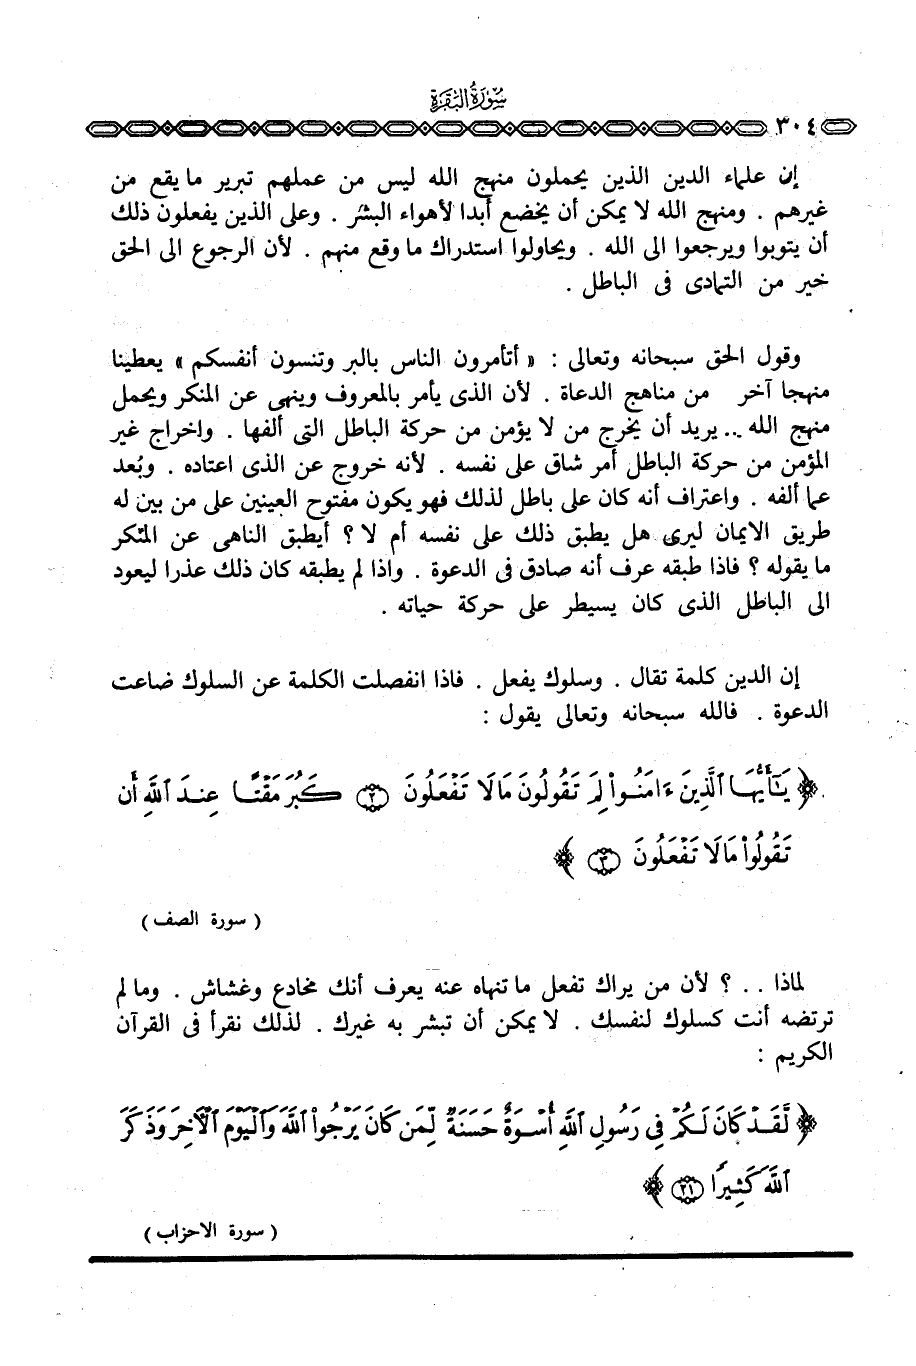 سورة البقرة
٣٠٤
إن علماء الدين الذين يحملون منهج الله ليس من عملهم تبرير ما يقع من
غيرهم . ومنهج الله لا يمكن أن يخضع أبدا لأهواء البشر . وعلى الذين يفعلون ذلك
أن يتوبوا ويرجعوا الى الله . ويحاولوا استدراك ما وقع منهم . لأن الرجوع الى الحق
خير من التمادى فى الباطل .
وقول الحق سبحانه وتعالى : « أتأمرون الناس بالبر وتنسون أنفسكم » يعطينا
منهجا آخر من مناهج الدعاة . لأن الذى يأمر بالمعروف وينهى عن المنكر ويحمل
منهج الله .. يريد أن يخرج من لا يؤمن من حركة الباطل التى ألفها . وإخراج غير
المؤمن من حركة الباطل أمر شاق على نفسه . لأنه خروج عن الذى اعتاده . وبُعد
عما ألفه . واعتراف أنه كان على باطل لذلك فهو يكون مفتوح العينين على من بين له
طريق الايمان ليرى هل يطبق ذلك على نفسه أم لا ؟ أيطبق الناهى عن المنكر
ما يقوله ؟ فاذا طبقه عرف أنه صادق فى الدعوة . واذا لم يطبقه كان ذلك عذرا ليعود
الى الباطل الذى كان يسيطر على حركة حياته .
إن الدين كلمة تقال . وسلوك يفعل . فاذا انفصلت الكلمة عن السلوك ضاعت
الدعوة . فالله سبحانه وتعالى يقول :
﴿ يَٰٓأَيُّهَا ٱلَّذِينَ ءَامَنُوا۟ لِمَ تَقُولُونَ مَا لَا تَفْعَلُونَ ۝٢ كَبُرَ مَقْتًا عِندَ ٱللَّهِ أَن
تَقُولُوا۟ مَا لَا تَفْعَلُونَ ۝٣ ﴾
( سورة الصف )
لماذا .. ؟ لأن من يراك تفعل ما تنهاه عنه يعرف أنك مخادع وغشاش . وما لم
ترتضه أنت كسلوك لنفسك . لا يمكن أن تبشر به غيرك . لذلك نقرأ فى القرآن
الكريم :
﴿ لَّقَدْ كَانَ لَكُمْ فِى رَسُولِ ٱللَّهِ أُسْوَةٌ حَسَنَةٌ لِّمَن كَانَ يَرْجُوا۟ ٱللَّهَ وَٱلْيَوْمَ ٱلْءَاخِرَ وَذَكَرَ
ٱللَّهَ كَثِيرًا ۝٢١ ﴾
( سورة الاحزاب )